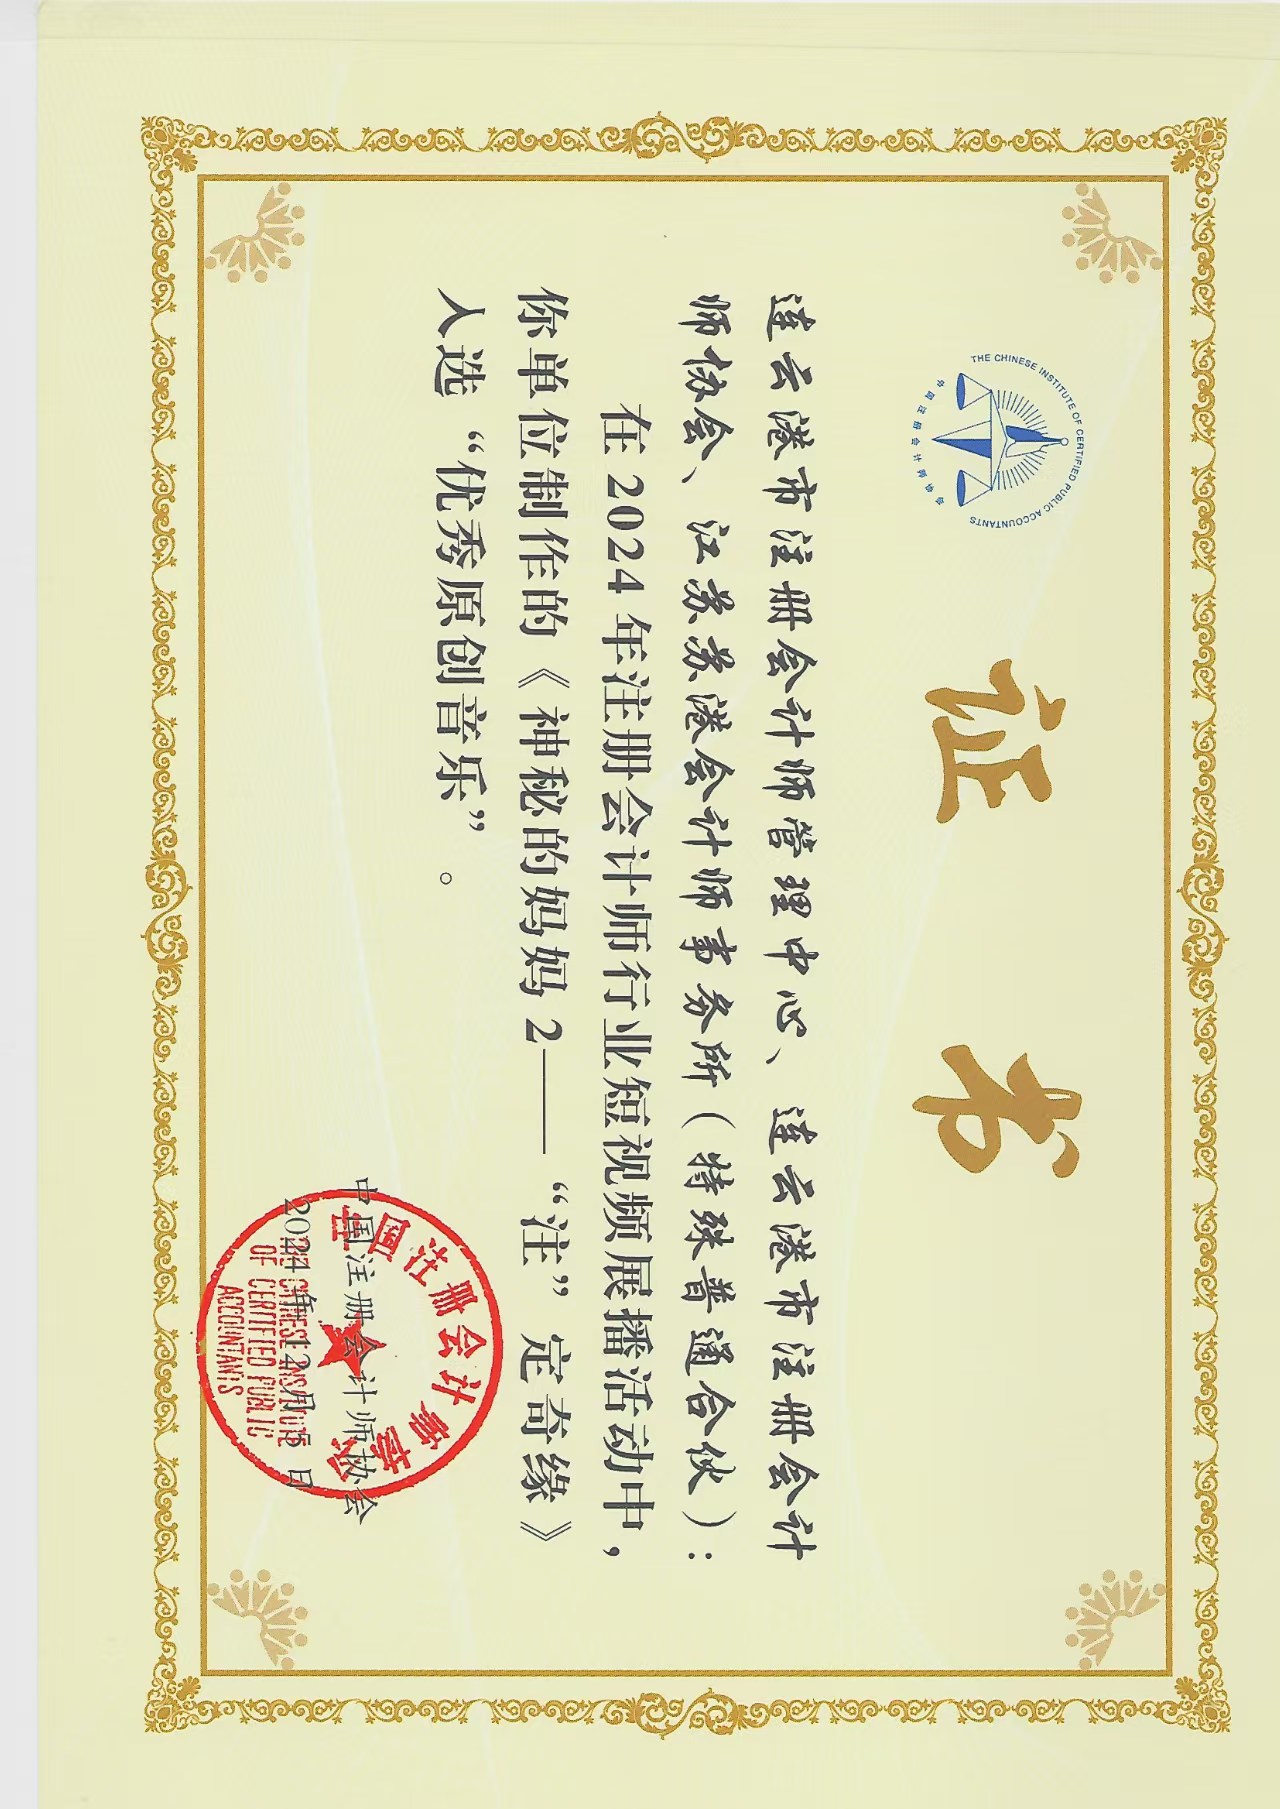 THE CHINESE INSTITUTE OF CERTIFIED PUBLIC ACCOUNTANTS
中国注册会计师协会
证书
连云港市注册会计师管理中心、连云港市注册会计
师协会、江苏苏港会计师事务所（特殊普通合伙）：
在2024年注册会计师行业短视频展播活动中，
你单位制作的《神秘的妈妈2——“注”定奇缘》
入选“优秀原创音乐”。
中国注册会计师协会
2024年12月5日
中国注册会计师协会
THE CHINESE INSTITUTE
OF CERTIFIED PUBLIC
ACCOUNTANTS